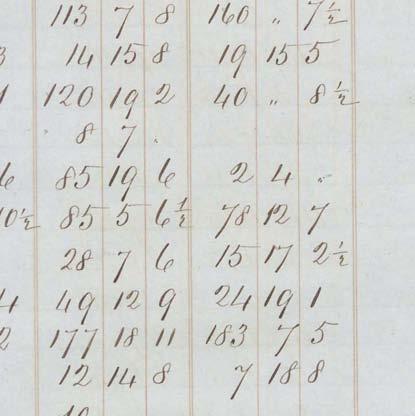 113 7 8 160 〃 7½
3 14 15 8 19 15 5
1 120 19 2 40 〃 8½
8 7 〃
6 85 19 6 2 4 〃
10½ 85 5 6½ 78 12 7
28 7 6 15 17 2½
4 49 12 9 24 19 1
2 177 18 11 183 7 5
12 14 8 7 18 8